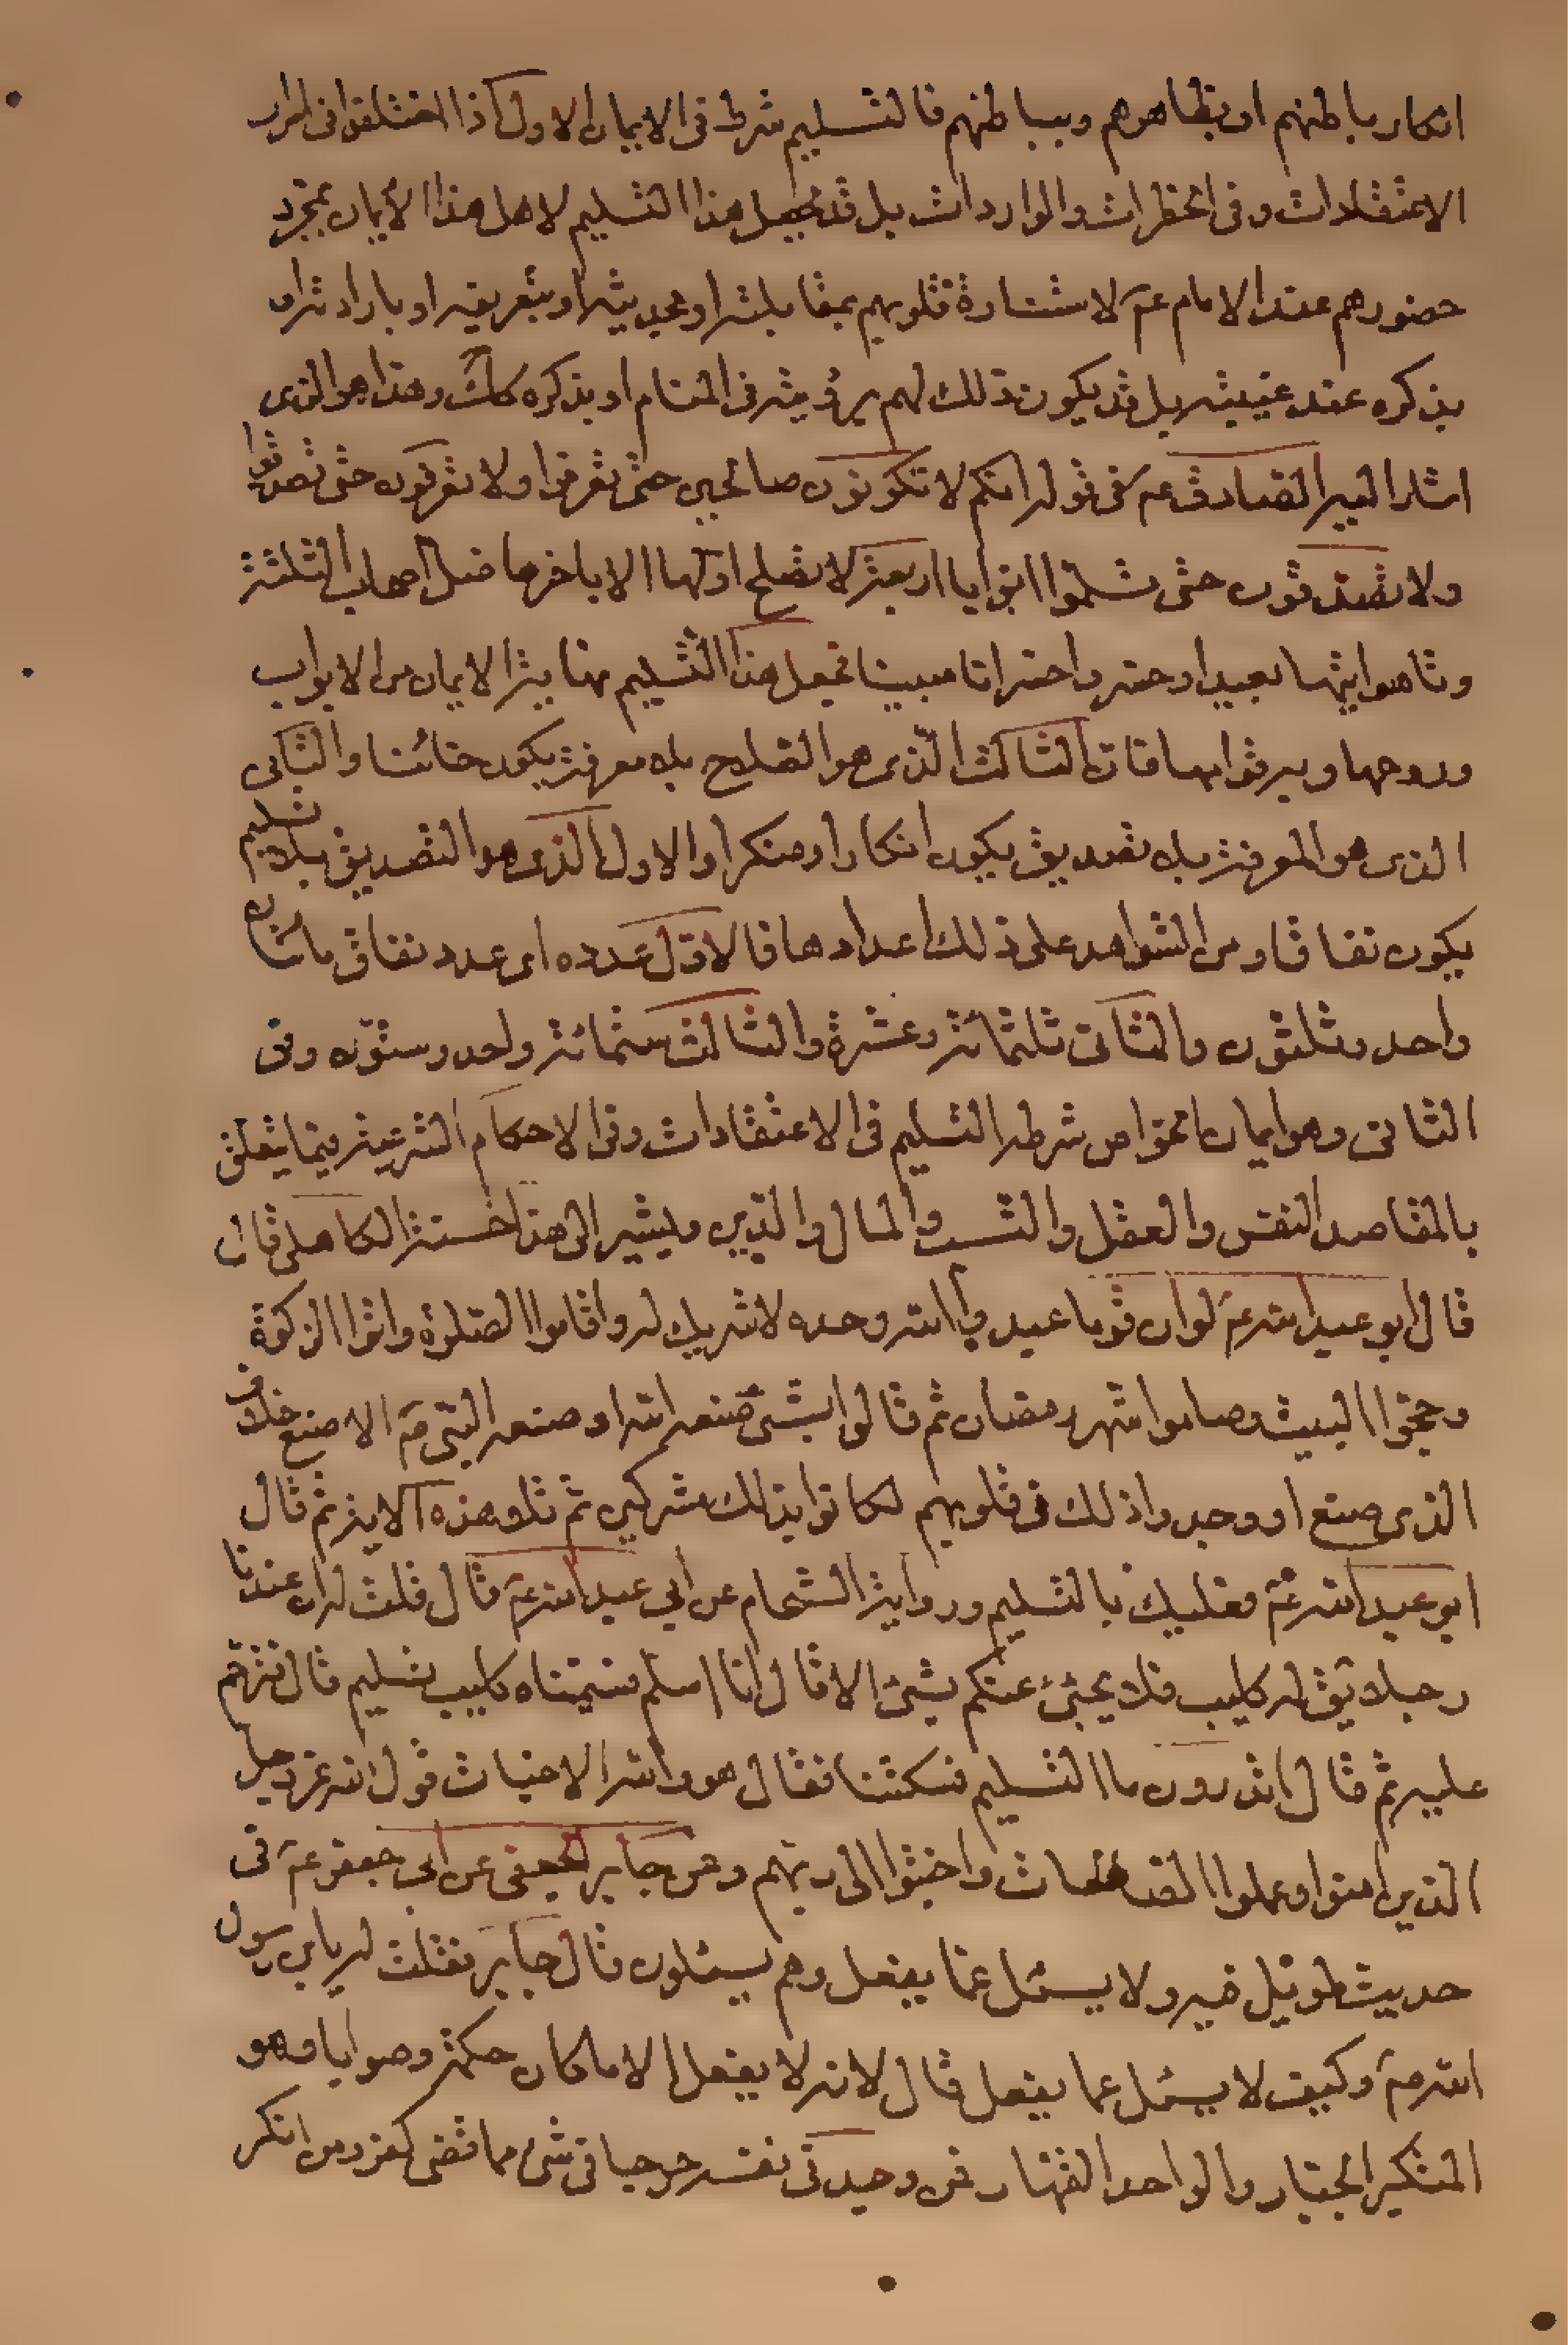 انكار باطنهم او بظاهرهم وبباطنهم فالتسليم شرط في الايمان الاول اذا اختلفوا في المراد
الاعتقادات وفي الخطرات والواردات بل قد يحصل هذا التسليم لاهل هذا الايمان بمجرد
حضورهم عند الامام عم لاستنارة قلوبهم بمقابلته او بحديثه او بتعريفه او بارادته او
بذكره عند غيبته بل قد يكون ذلك لهم برؤيته في المنام او بذكره كك وهذا هو الذي
اشار اليه الصادق عم في قوله انكم لا تكونون صالحين حتى تعرفوا ولا تعرفون حتى تصدقوا
ولا تصدقون حتى تسلموا ابوابا اربعة لا يصلح اولها الا باخرها ضل اصحاب الثلثة
وتاهوا تيها بعيدا وخسروا خسرانا مبينا فجعل هذا التسليم نهاية الايمان من الابواب
وروحها و بها فان الثالث الذي هو الصلاح بلا معرفة يكون والثاني
الذي هو المعرفة بلا تصديق يكون انكارا ومنكرا والاول الذي هو التصديق بلا تسليم
يكون نفاقا ومن الشواهد على ذلك اعدادها فالاول عدده اي عدد نفاق مائتان
واحد وثلثون والثاني ثلثمائة وعشرة والثالث ستمائة واحد وستون وفي
الثاني وهو ايمان الخواص شرطه التسليم في الاعتقادات وفي الاحكام الشرعية فيما يتعلق
بالمقاصد النفس والعقل والنسب والمال والدين ويشير الى هذا الكاهلي قال
قال ابو عبد الله عم لو ان قوما عبدوا الله وحده لا شريك له واقاموا الصلوة واتوا الزكوة
وحجوا البيت وصاموا شهر رمضان ثم قالوا لشئ صنعه الله او صنعه النبي ص الا صنع خلاف
الذي صنع او وجدوا ذلك في قلوبهم لكانوا بذلك مشركين ثم تلا هذه الاية ثم قال
ابو عبد الله عم فعليك بالتسليم ورواية الشحام عن ابي عبد الله عم قال قلت له ان عندنا
رجلا يق له كليب فلا يجئ عنكم شئ الا قال انا اسلم فسميناه كليب تسليم قال فترحم
عليه ثم قال اتدرون ما التسليم فسكتنا فقال هو والله الاخبات قول الله عز وجل
الذين امنوا وعملوا الصالحات واخبتوا الى ربهم وعن جابر الجعفي عن ابي جعفر عم في
حديث طويل فيه ولا يسئل عما يفعل وهم يسئلون قال جابر فقلت له يابن رسول
الله ص وكيف لا يسئل عما يفعل قال لانه لا يفعل الا ما كان حكمة وصوابا وهو
المتكبر الجبار والواحد القهار فمن وجد في نفسه حرجا في شئ مما قضى كفر ومن انكر